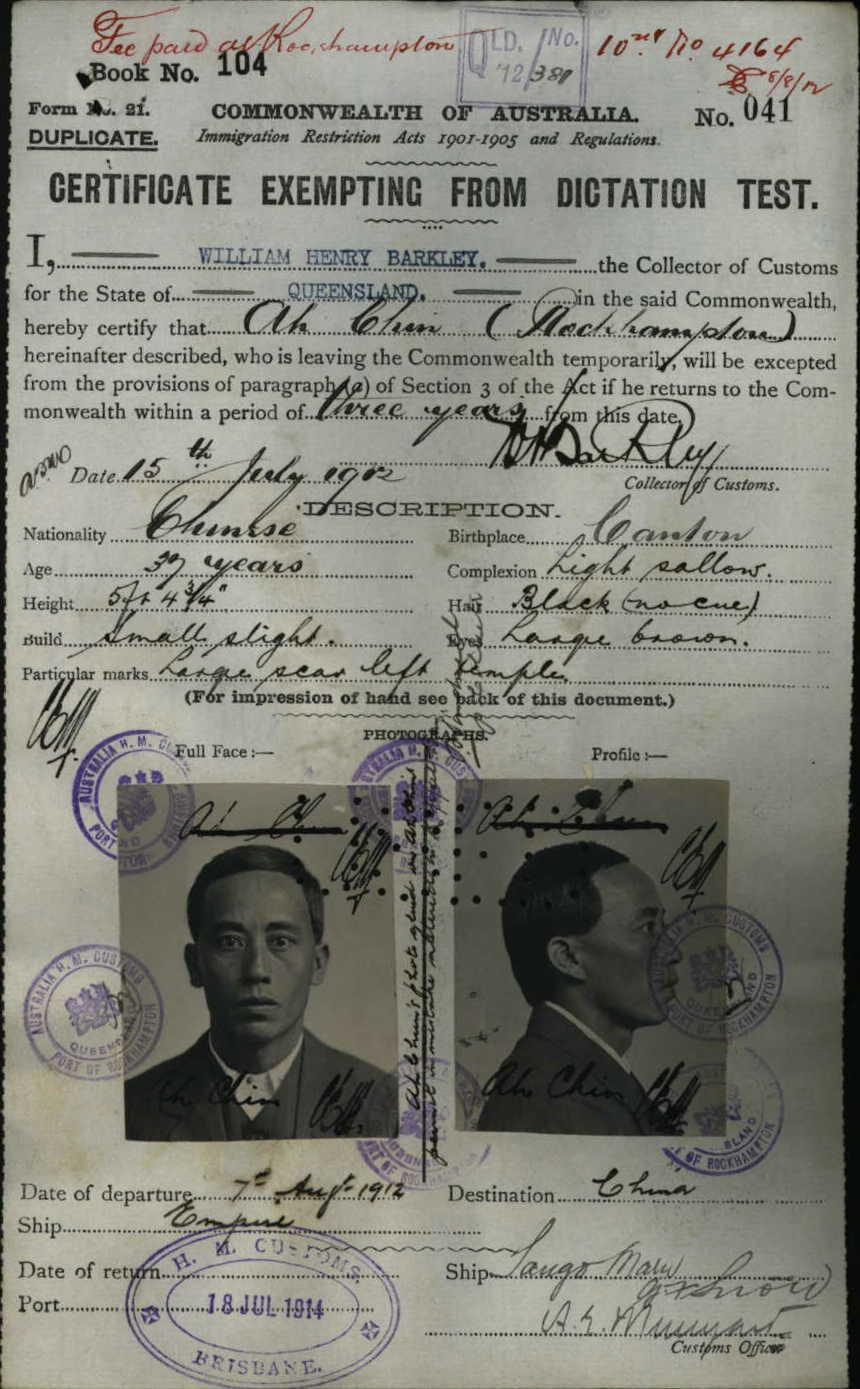 Fee paid at Rockhampton
QLD. No.
12/381
10 No 4164
8/8/12
Book No. 104
Form No. 21.
COMMONWEALTH OF AUSTRALIA.
No. 041
DUPLICATE.
Immigration Restriction Acts 1901-1905 and Regulations.
CERTIFICATE EXEMPTING FROM DICTATION TEST.
I, WILLIAM HENRY BARKLEY, the Collector of Customs
for the State of QUEENSLAND, in the said Commonwealth,
hereby certify that Ah Chin (Rockhampton)
hereinafter described, who is leaving the Commonwealth temporarily, will be excepted
from the provisions of paragraph (a) of Section 3 of the Act if he returns to the Com-
monwealth within a period of three years from this date.
W H Barkley
Date 15th July 1912
Collector of Customs.
DESCRIPTION.
Nationality Chinese
Birthplace Canton
Age 37 years
Complexion Light sallow.
Height 5ft 4 3/4"
Hair Black (no cue)
Build Small slight.
Eyes Large brown.
Particular marks Large scar left temple
(For impression of hand see back of this document.)
PHOTOGRAPHS.
Full Face:—
Profile:—
AUSTRALIA H. M. CUSTOMS
QUEENSLAND
PORT OF ROCKHAMPTON
Ah Chin
Ah Chin
Ah Chin
Ah Chin
Date of departure 7th Augt 1912
Destination China
Ship Empire
Date of return
Ship Maru
Port
H. M. CUSTOMS
18 JUL 1914
BRISBANE.
Customs Officer